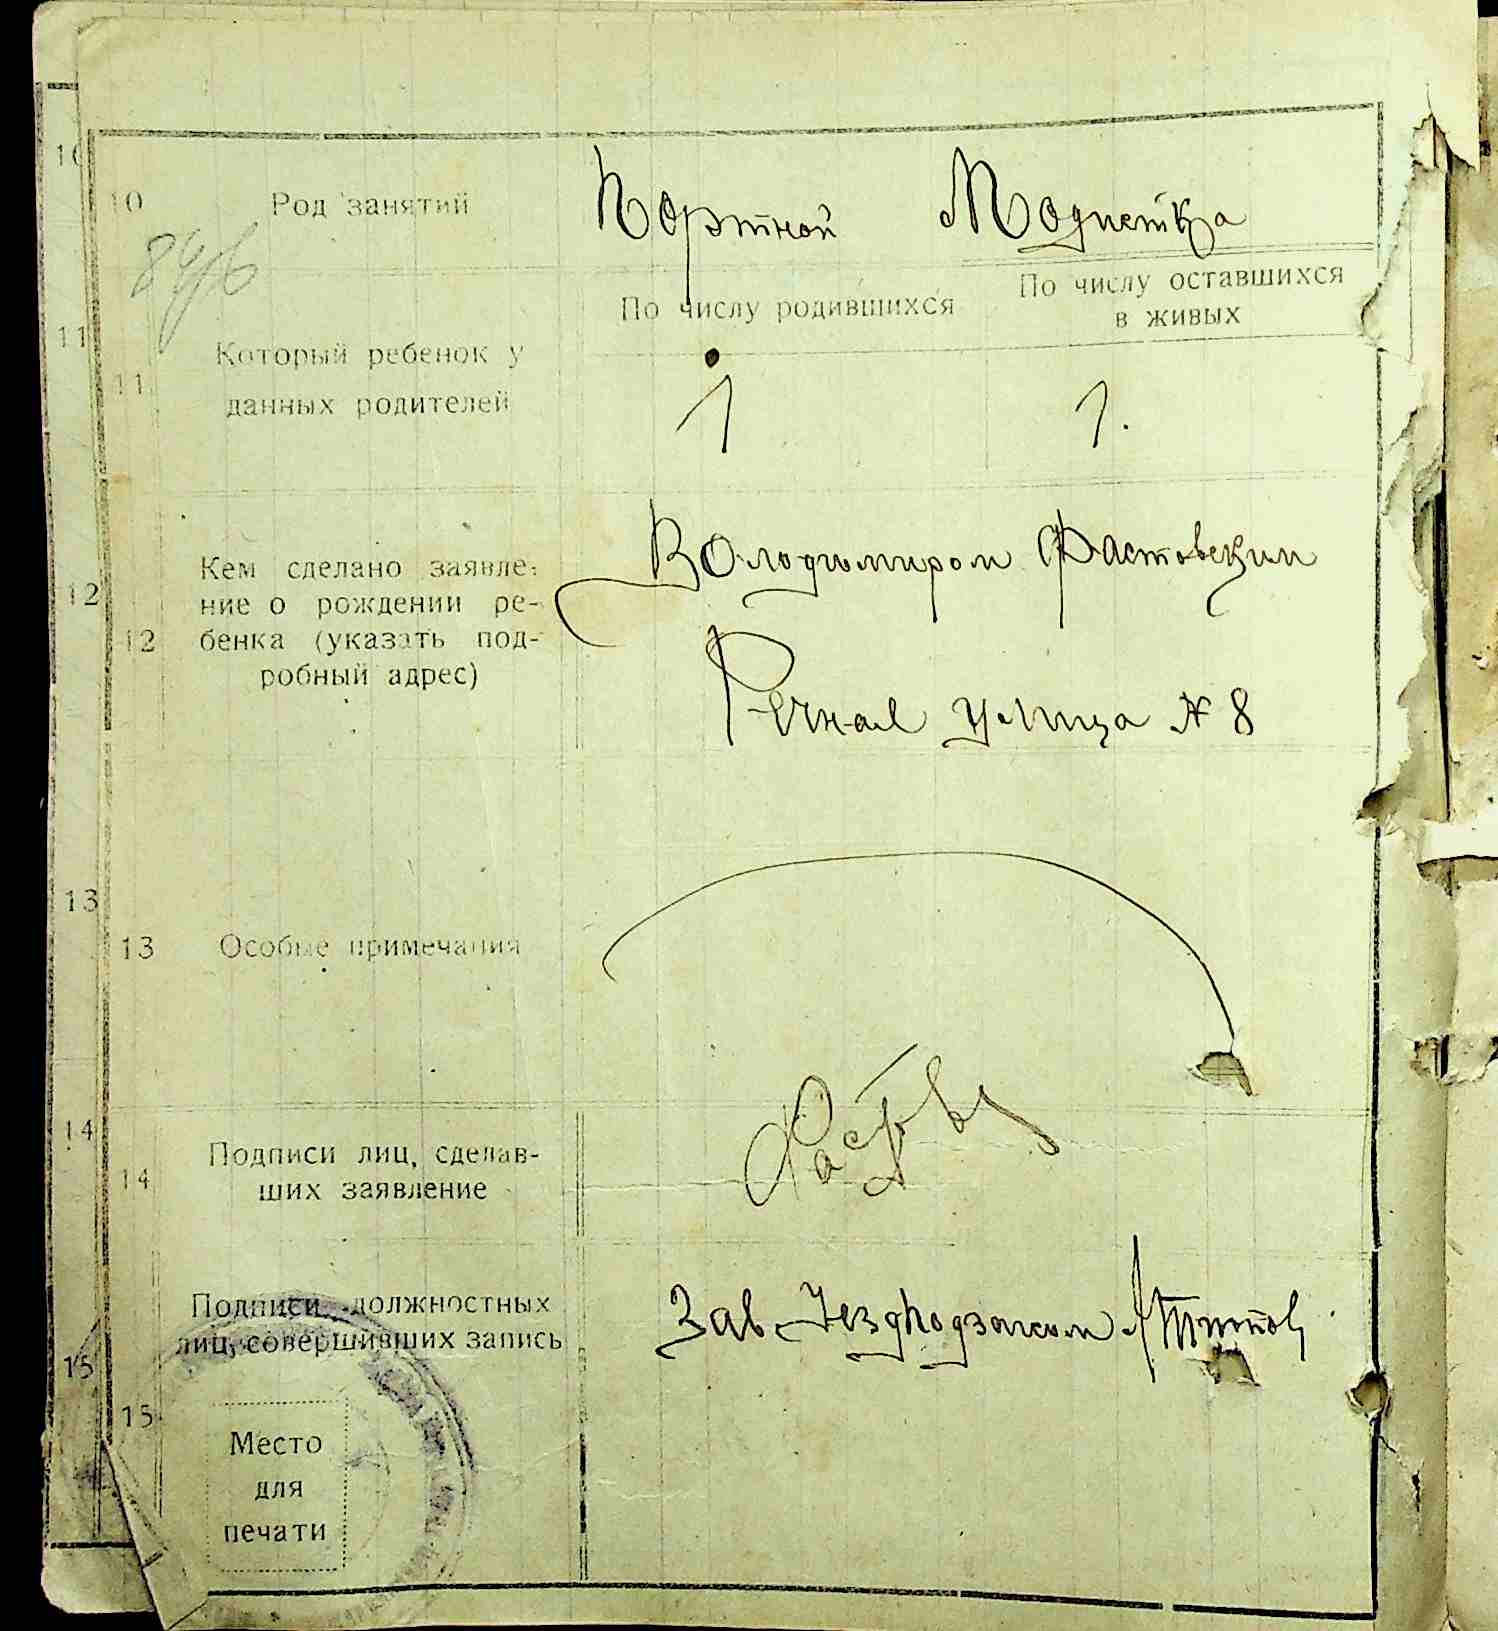 10 Род занятий Портной Модистка
84/6
По числу родившихся
По числу оставшихся
в живых
11 Который ребенок у
данных родителей
1 1.
12 Кем сделано заявле-
ние о рождении ре-
бенка (указать под-
робный адрес)
Володымиром Фастовским
Речная улица № 8
13 Особые примечания
14 Подписи лиц, сделав-
ших заявление
15 Подписи должностных
лиц, совершивших запись
Зав.
Место
для
печати
10
11
12
13
14
15